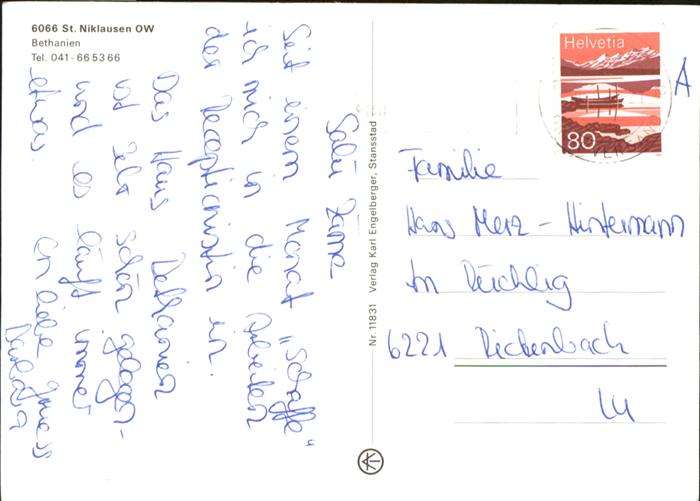 6066 St. Niklausen OW
Bethanien
Tel. 041 - 66 53 66
Salü zäme
Seit einem Monat "schaffe"
ich mich in die Arbeiten
der Receptionistin in.
Das Haus Bethanien
ist sehr schön gelegen
und es läuft immer
etwas.
En liebe Gruess
Nr. 11831 Verlag Karl Engelberger, Stansstad
Helvetia
80
A
Familie
Hans Merz - Hintermann
Im
6221 Rickenbach
LU